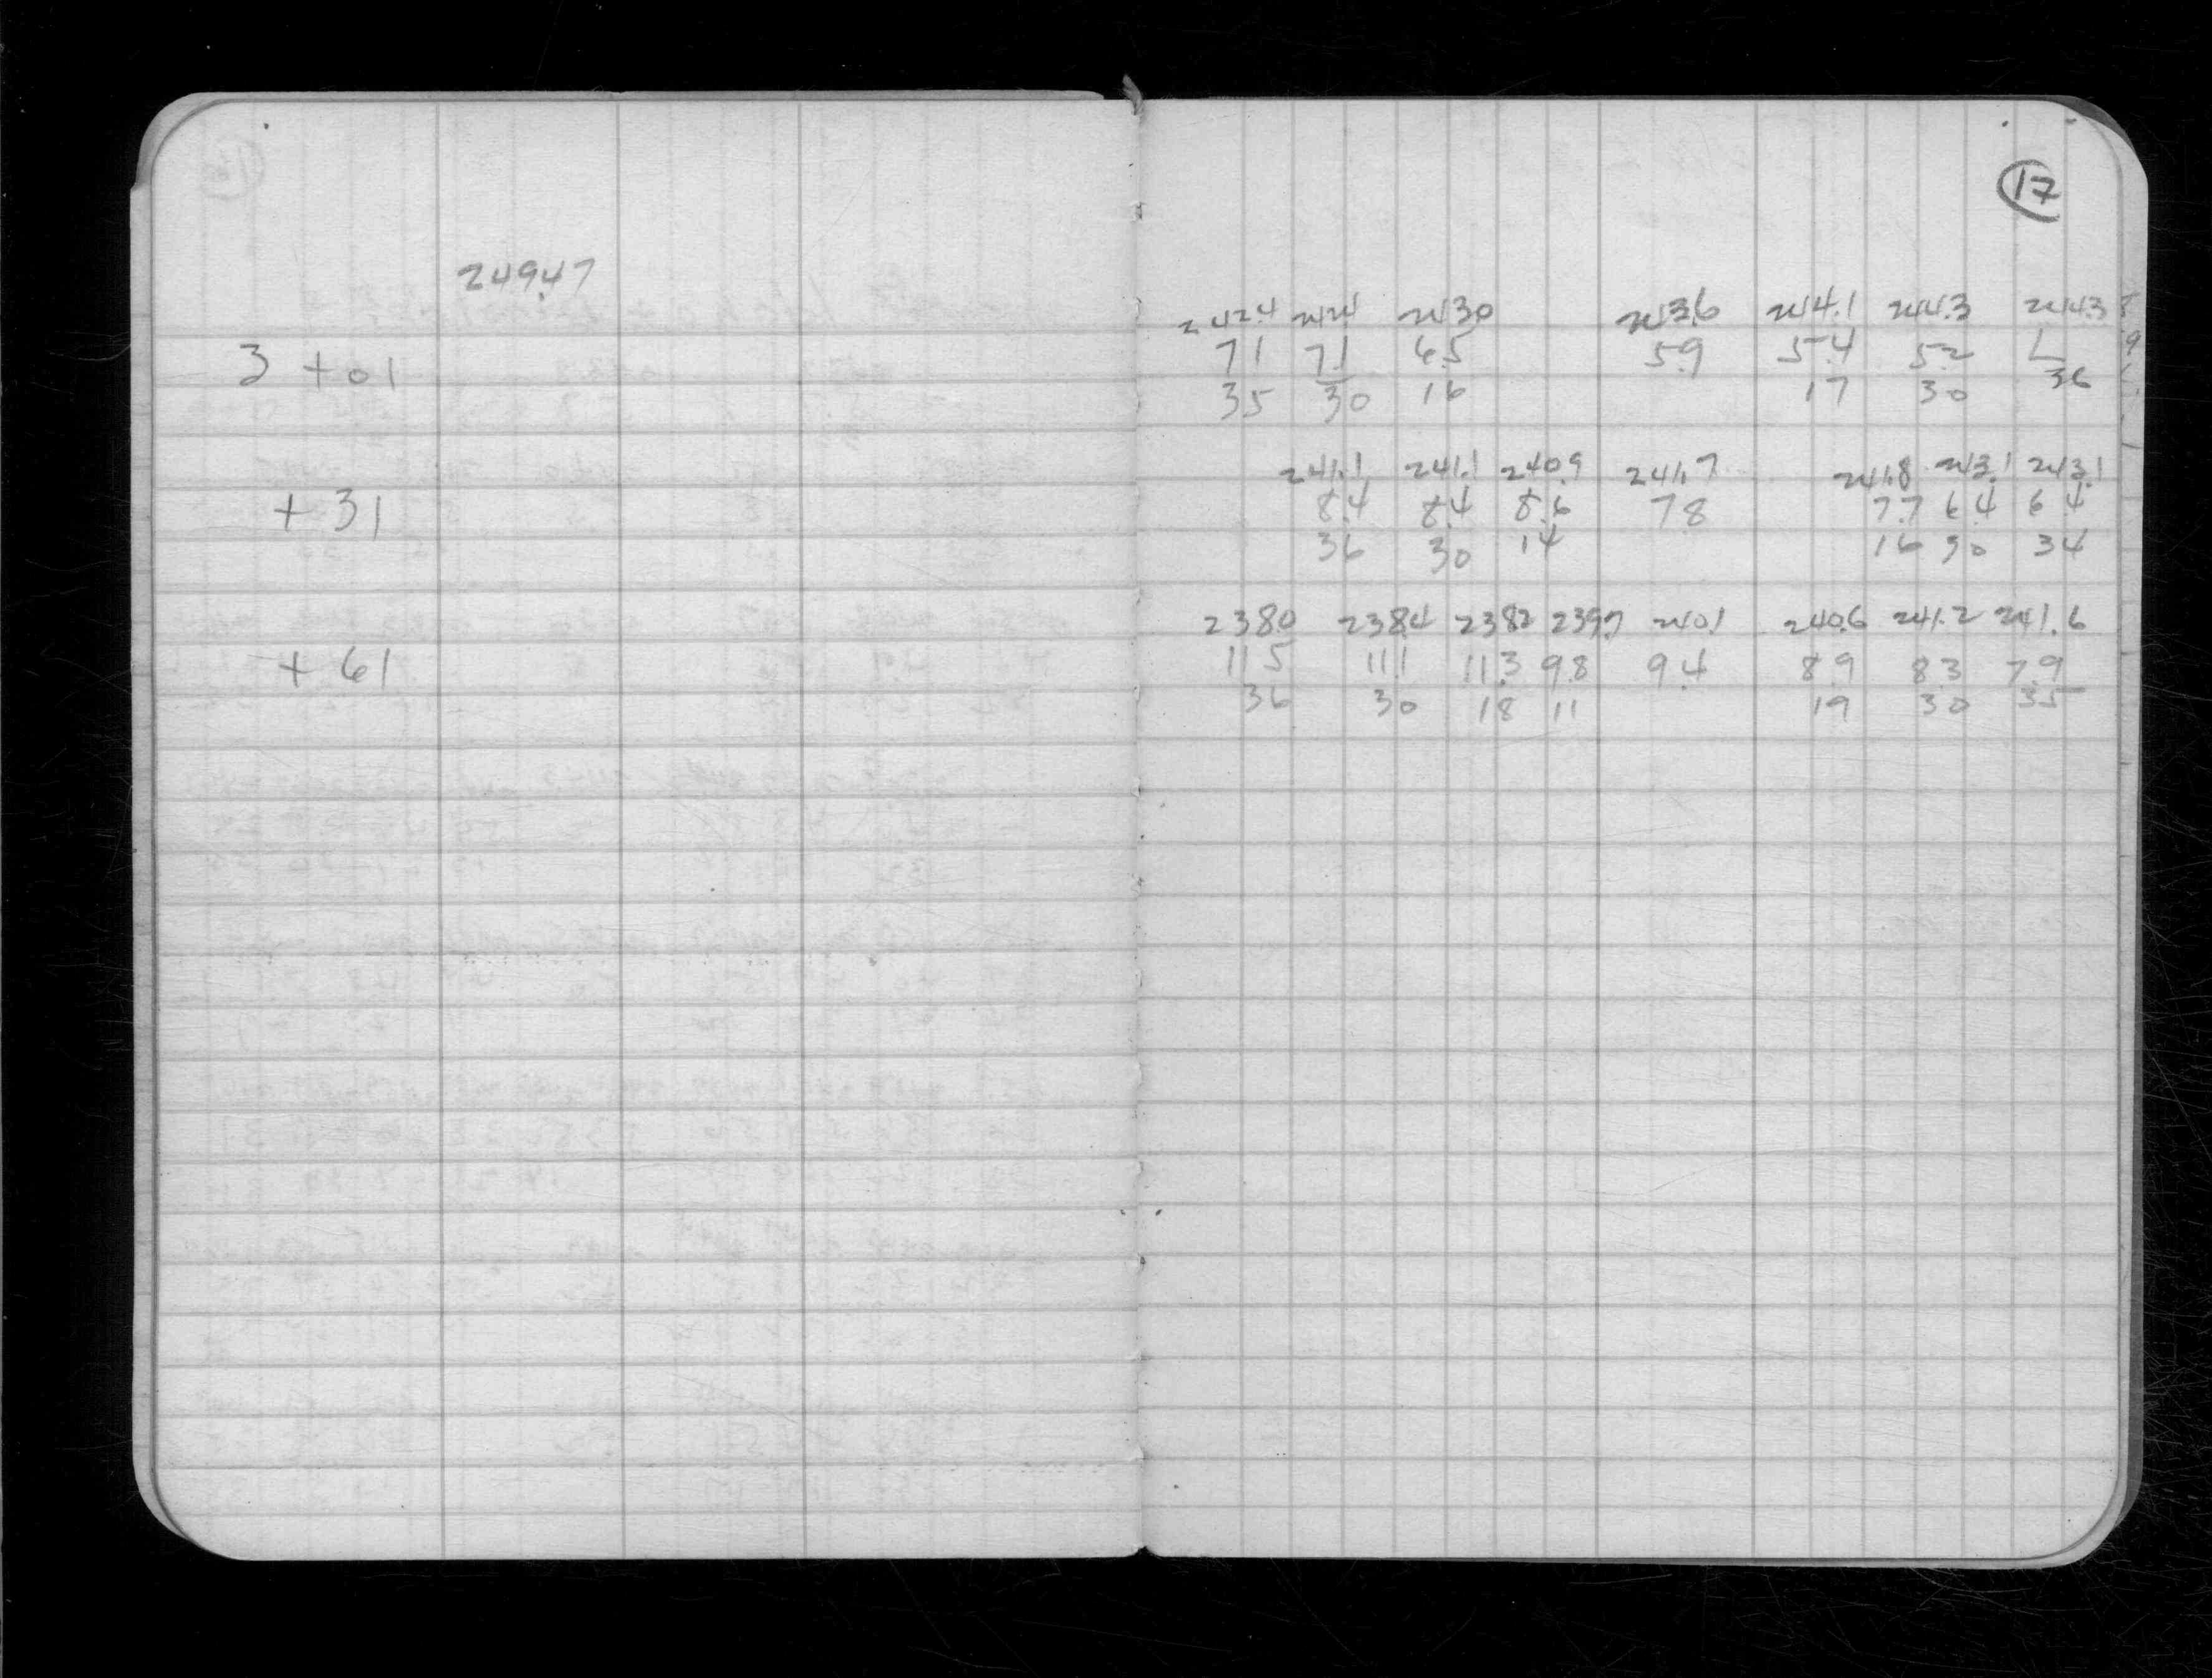 17
249.47
242.4 242.4 243.0 243.6 244.1 244.3 244.3
3 + 01 7.1 7.1 6.5 5.9 5.4 5.2 L
35 30 16 17 30 36
241.1 241.1 240.9 241.7 241.8 243.1 243.1
+ 31 8.4 8.4 8.6 7.8 7.7 6.4 6.4
36 30 14 16 30 34
238.0 238.4 238.2 239.7 240.1 240.6 241.2 241.6
+ 61 11.5 11.1 11.3 9.8 9.4 8.9 8.3 7.9
36 30 18 11 19 30 35